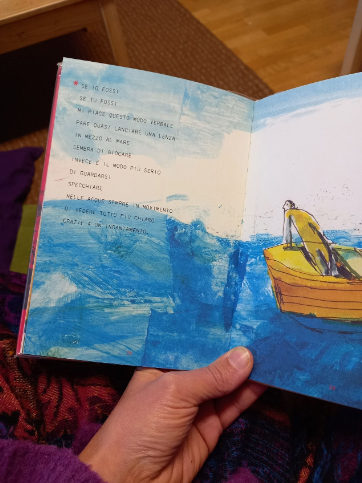 SE IO FOSSI
SE TU FOSSI
MI PIACE QUESTO MODO VERBALE
PARE QUASI LANCIARE UNA LENZA
IN MEZZO AL MARE
SEMBRA DI GIOCARE
INVECE È IL MODO PIÙ SERIO
DI GUARDARSI
SPECCHIARE
NELLE ACQUE SEMPRE IN MOVIMENTO
DI VEDERE TUTTO PIÙ CHIARO
GRAZIE A UN INCANTAMENTO